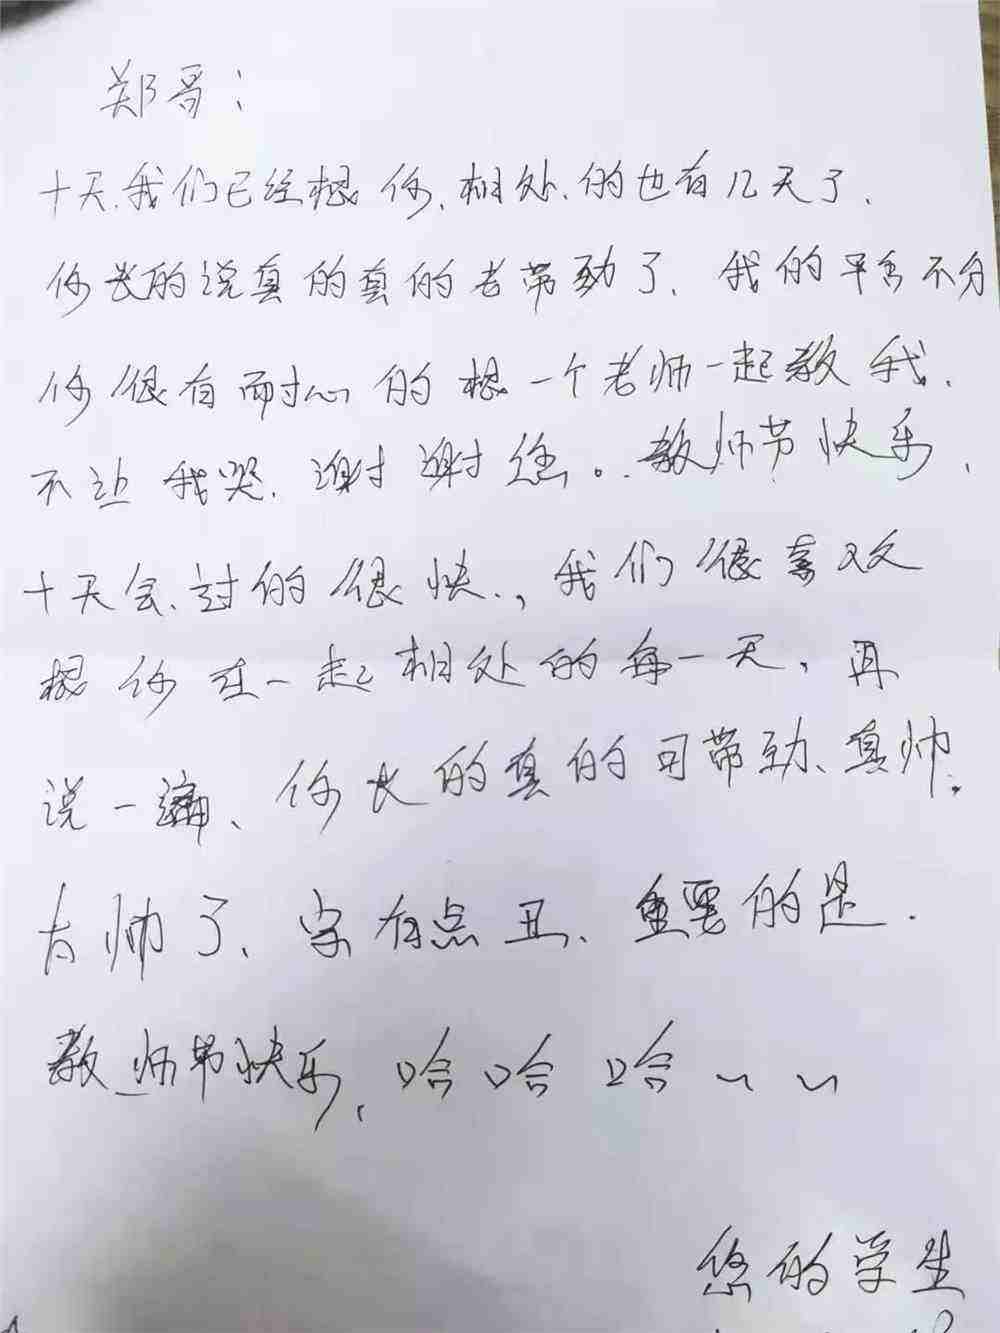 郑哥：
十天.我们已经根你.相处.的也有几天了.
你长的说真的真的老带劲了.我的平舌不分
你很有耐心的根一个老师一起教我.
不让我哭.谢谢您。.教师节快乐.
十天会.过的很快.，我们很喜欢
根你在一起相处的每一天，再
说一遍、你长的真的可带劲、真帅.
太帅了、字有点丑、重要的是.
教师节快乐，哈哈哈~~
您的学生